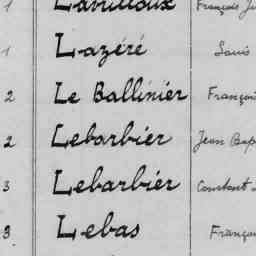 1 Lavilloux François Ju
1 Lazéré Louis
2 Le Ballinier François
2 Lebarbier Jean Bap
3 Lebarbier Constant
3 Lebas François